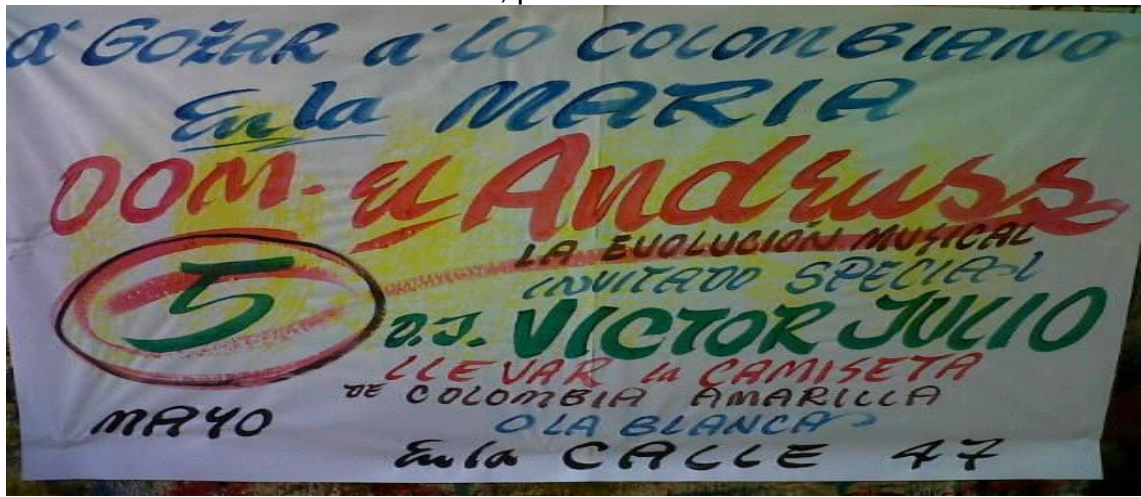 a' GOZAR a' LO COLOMBIANO
En la MARIA
DOM. El Andruss
5
LA EVOLUCIÓN MUSICAL
INVITADO SPECIAL
D.J. VICTOR JULIO
LLEVAR la CAMISETA
DE COLOMBIA AMARILLA
MAYO
O LA BLANCA
En la CALLE 47